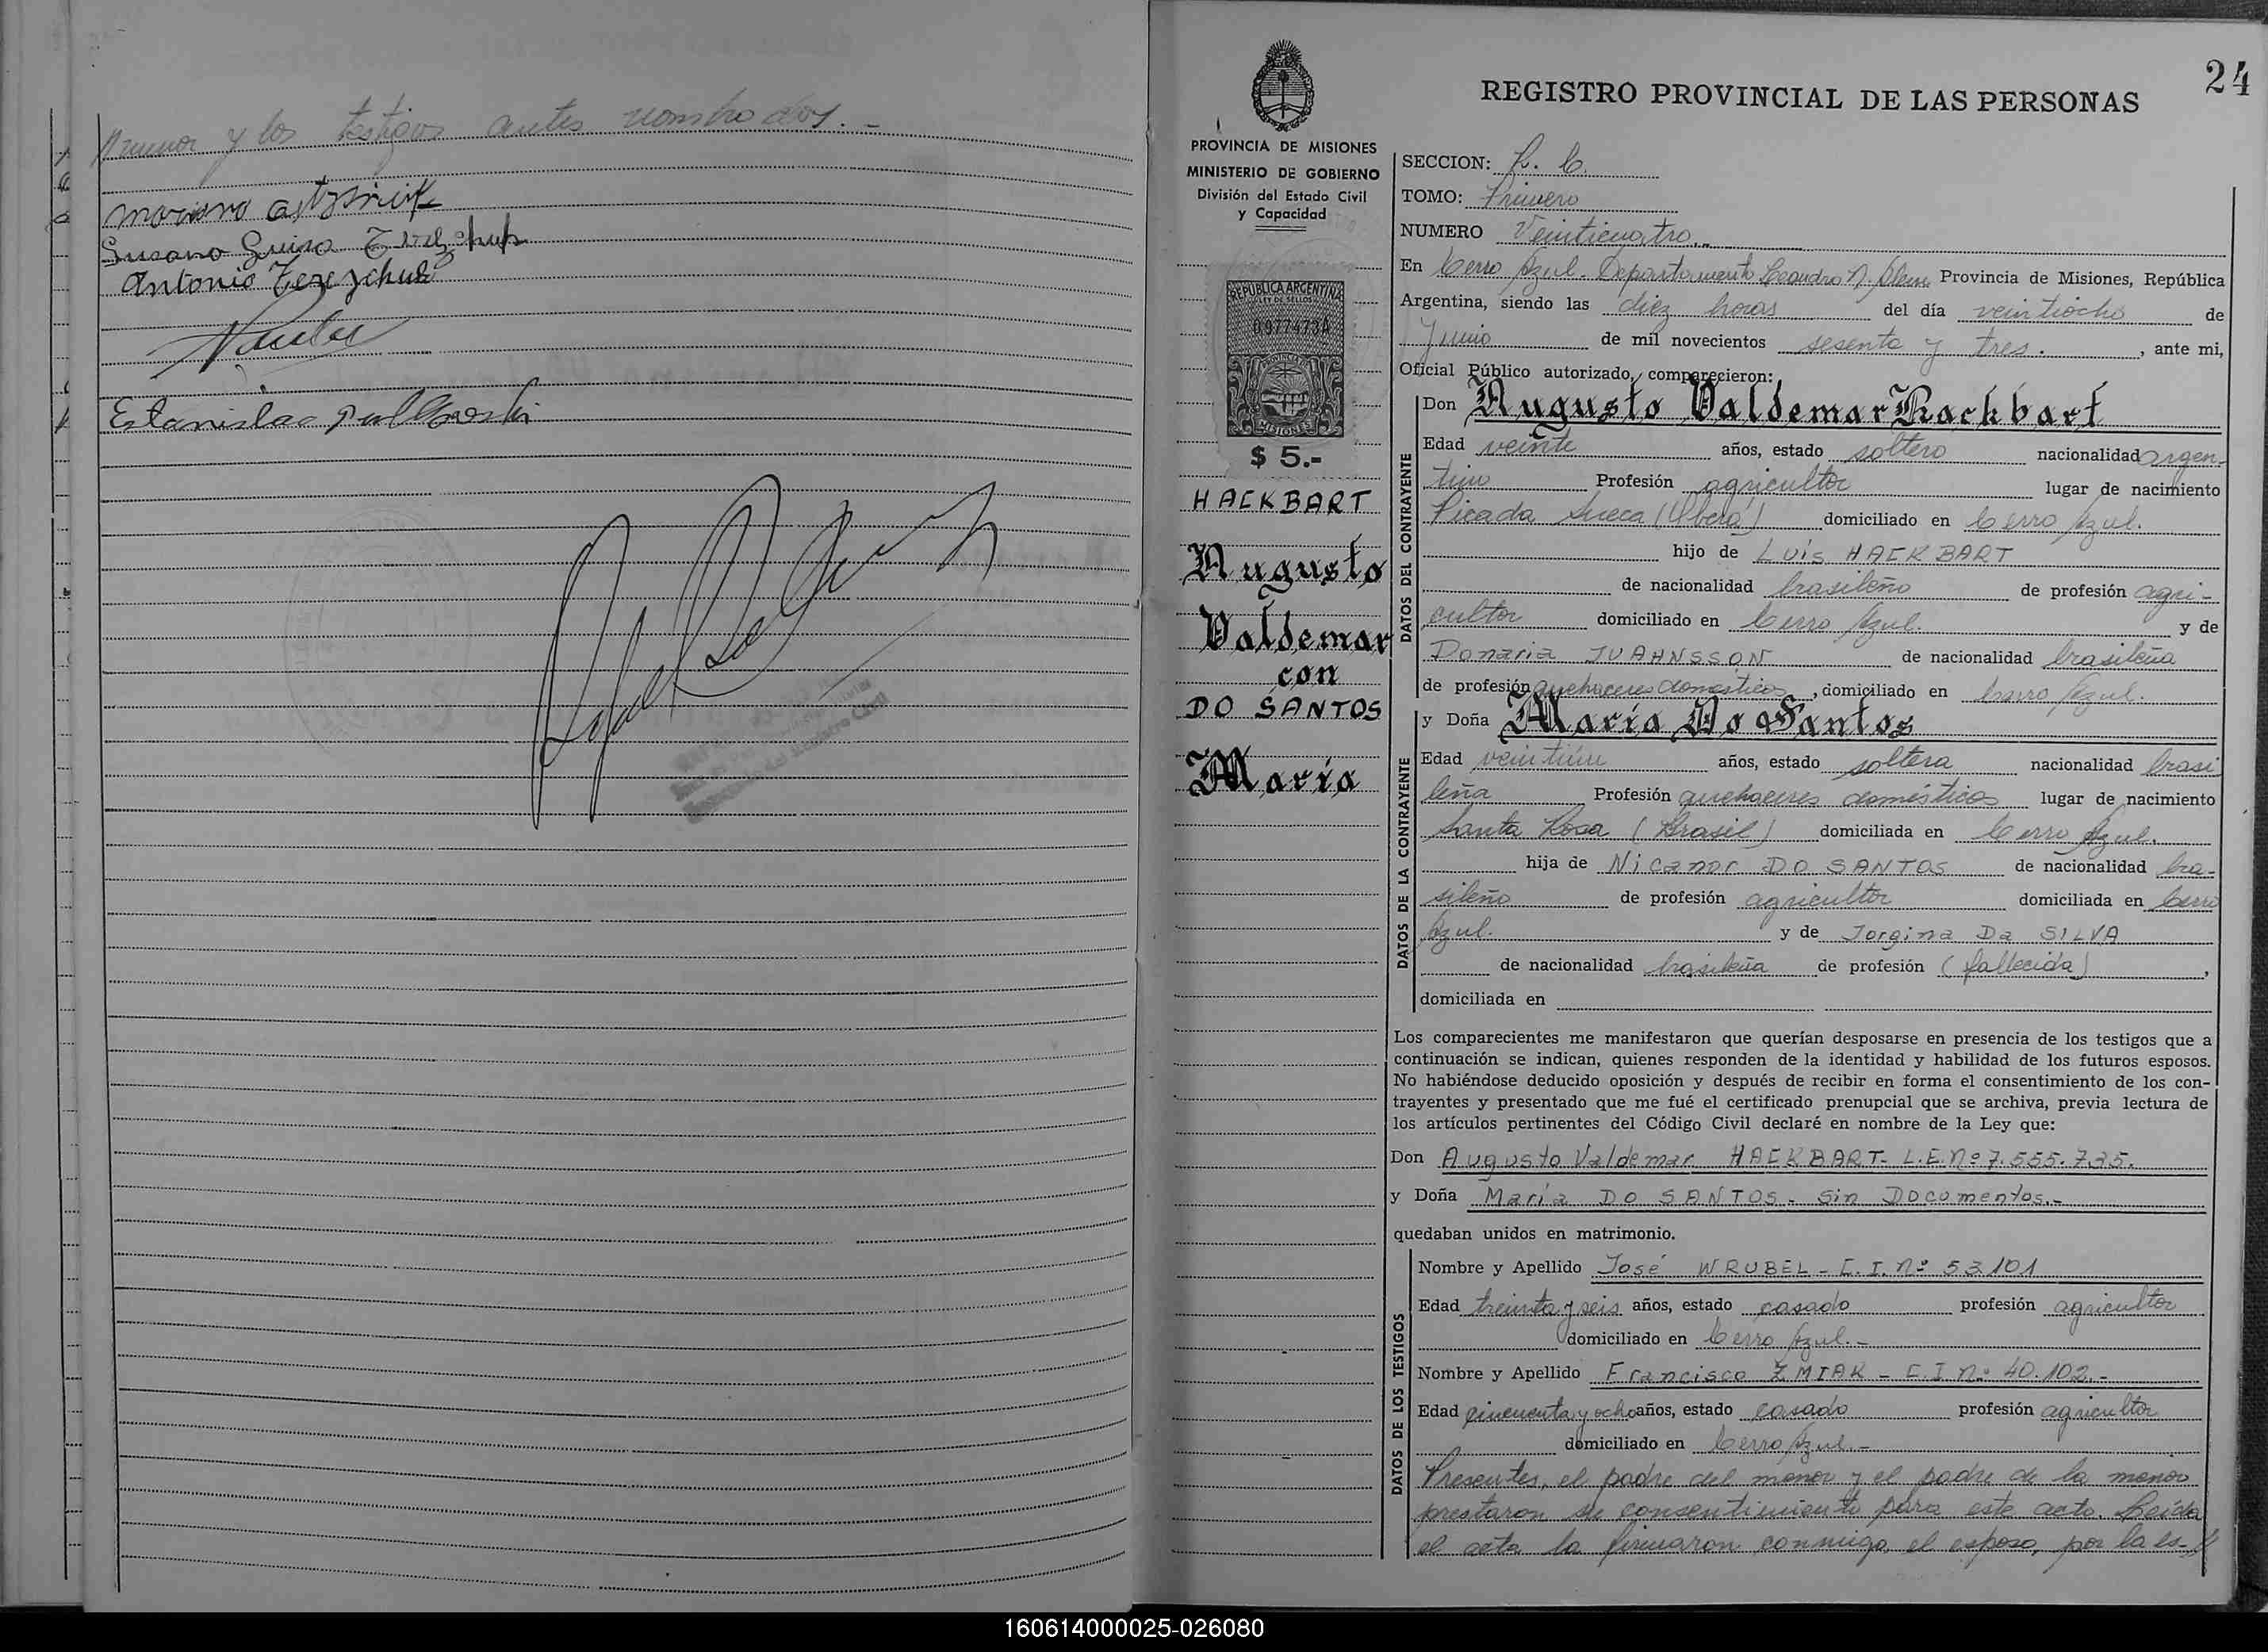 menor y los testigos antes nombrados.-
Antonio
Estanislao
24
REGISTRO PROVINCIAL DE LAS PERSONAS
PROVINCIA DE MISIONES
MINISTERIO DE GOBIERNO
División del Estado Civil
y Capacidad
REPUBLICA ARGENTINA
LEY DE SELLOS
0977473A
MISIONES
$ 5.-
HACKBART
Augusto
Valdemar
con
DO SANTOS
María
SECCION: R. C.
TOMO: Primero
NUMERO Veinticuatro.-
En Cerro Azul. Departamento Leandro N. Alem Provincia de Misiones, República
Argentina, siendo las diez horas del día veintiocho de
Junio de mil novecientos sesenta y tres. , ante mi,
Oficial Público autorizado, comparecieron:
DATOS DEL CONTRAYENTE
Don Augusto Valdemar Hackbart
Edad veinte años, estado soltero nacionalidad argen-
tino Profesión agricultor lugar de nacimiento
Picada Sueca (Oberá) domiciliado en Cerro Azul.
hijo de Luis HACKBART
de nacionalidad brasileño de profesión agri-
cultor domiciliado en Cerro Azul. y de
Donaria JUAHNSSON de nacionalidad brasileña
de profesión quehaceres domésticos, domiciliado en Cerro Azul.
DATOS DE LA CONTRAYENTE
y Doña María Do Santos
Edad veintiún años, estado soltera nacionalidad brasi
leña Profesión quehaceres domésticos lugar de nacimiento
Santa Rosa (Brasil) domiciliada en Cerro Azul.
hija de Nicanor DO SANTOS de nacionalidad bra-
sileño de profesión agricultor domiciliada en Cerro
Azul. y de Jorgina Da SILVA
de nacionalidad brasileña de profesión (fallecida) ,
domiciliada en
Los comparecientes me manifestaron que querían desposarse en presencia de los testigos que a
continuación se indican, quienes responden de la identidad y habilidad de los futuros esposos.
No habiéndose deducido oposición y después de recibir en forma el consentimiento de los con-
trayentes y presentado que me fué el certificado prenupcial que se archiva, previa lectura de
los artículos pertinentes del Código Civil declaré en nombre de la Ley que:
Don Augusto Valdemar HACKBART- L.E.Nº 7.555.735.
y Doña María DO SANTOS - Sin Documentos.-
quedaban unidos en matrimonio.
DATOS DE LOS TESTIGOS
Nombre y Apellido José WRUBEL - C.I. Nº 53101
Edad treinta y seis años, estado casado profesión agricultor
domiciliado en Cerro Azul.-
Nombre y Apellido Francisco ZMIAK - C.I. Nº 40.102.-
Edad cincuenta y ocho años, estado casado profesión agricultor
domiciliado en Cerro Azul.-
Presentes, el padre del menor y el padre de la menor
prestaron su consentimiento para este acto. Leída
el acta la firmaron conmigo, el esposo, por la es-
160614000025-026080